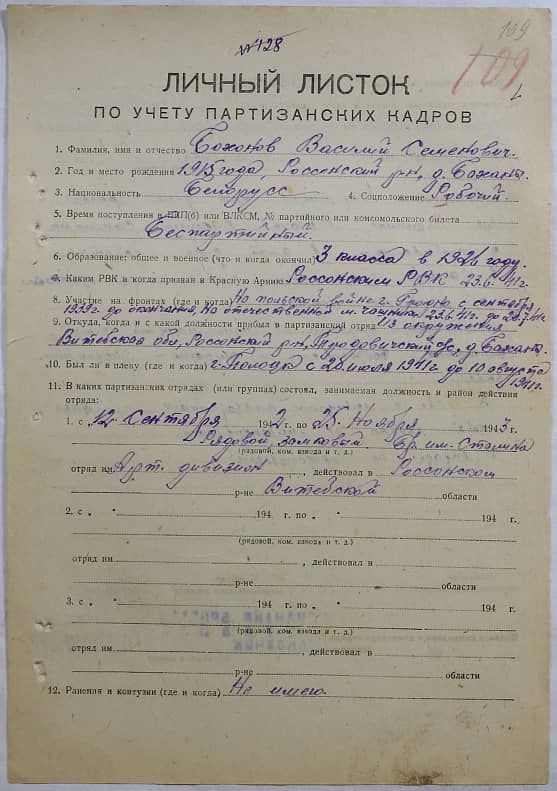 №128
109
109
ЛИЧНЫЙ ЛИСТОК
ПО УЧЕТУ ПАРТИЗАНСКИХ КАДРОВ
1. Фамилия, имя и отчество Бохонов Василий Семенович.
2. Год и место рождения 1915 года, Россонский р-н, д.
3. Национальность Белорусс 4. Соцположение Рабочий.
5. Время поступления в ЦКП(б) или ВЛКСМ, № партийного или комсомольского билета
Беспартийный.
6. Образование: общее и военное (что и когда окончил) 3 класса в 1926 году.
7. Каким РВК и когда призван в Красную Армию Россонским РВК 23.6.41г.
8. Участие на фронтах (где и когда) На польской войне г. Гродно с сентября
1939г. до окончания, На отечественной м. 23.6.41г. до 28.7.41г.
9. Откуда, когда и с какой должности прибыл в партизанский отряд Из окружения
Витебская обл, Россонский р-н, с/с, д.
10. Был ли в плену (где и когда) г. Полоцк с 28 июля 1941г до 10 августа
1941г.
11. В каких партизанских отрядах (или группах) состоял, занимаемая должность и район действия
отряда:
1. с „12 Сентября 1942 г. по 25 Ноября 1943 г.
Рядовой, замковый Бр. им. Сталина
(рядовой, ком. взвода и т. д.)
отряд им Арт. дивизион, действовал в Россонском
р-не Витебской области
2. с „ " 194 г. по „ " 194 г.
(рядовой, ком. взвода и т. д.)
отряд им. , действовал в
р-не области
3. с „ " 194 г. по „ " 194 г.
(рядовой, ком. взвода и т. д.)
отряд им. , действовал в
р-не области
12. Ранения и контузии (где и когда) Не имею.